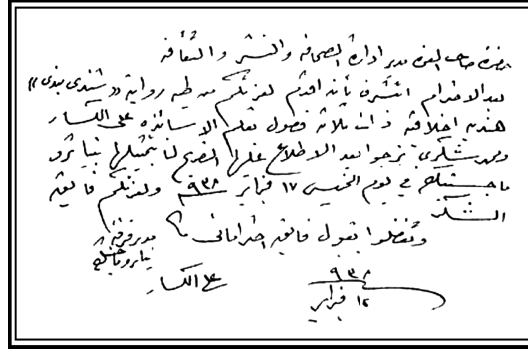 حضرة صاحب العزة مدير ادارة الصحافة والنشر والثقافة
بعد الاحترام اتشرف بأن اقدم لعزتكم من طيه رواية «شندى بندى»
هندية اخلاقية ذات ثلاثة فصول بقلم الاساتذه على الكسار
ومحمد شكرى نرجو بعد الاطلاع عليها التصريح لنا بتمثيلها بتياترو
ماجستيك في يوم الخميس ١٧ فبراير ٩٣٨ ولعزتكم فائق
الشكر
وتفضلوا بقبول فائق احتراماتى
مدير فرقة
تياترو ماجستيك
على الكسار
٩٣٨
١٢ فبراير